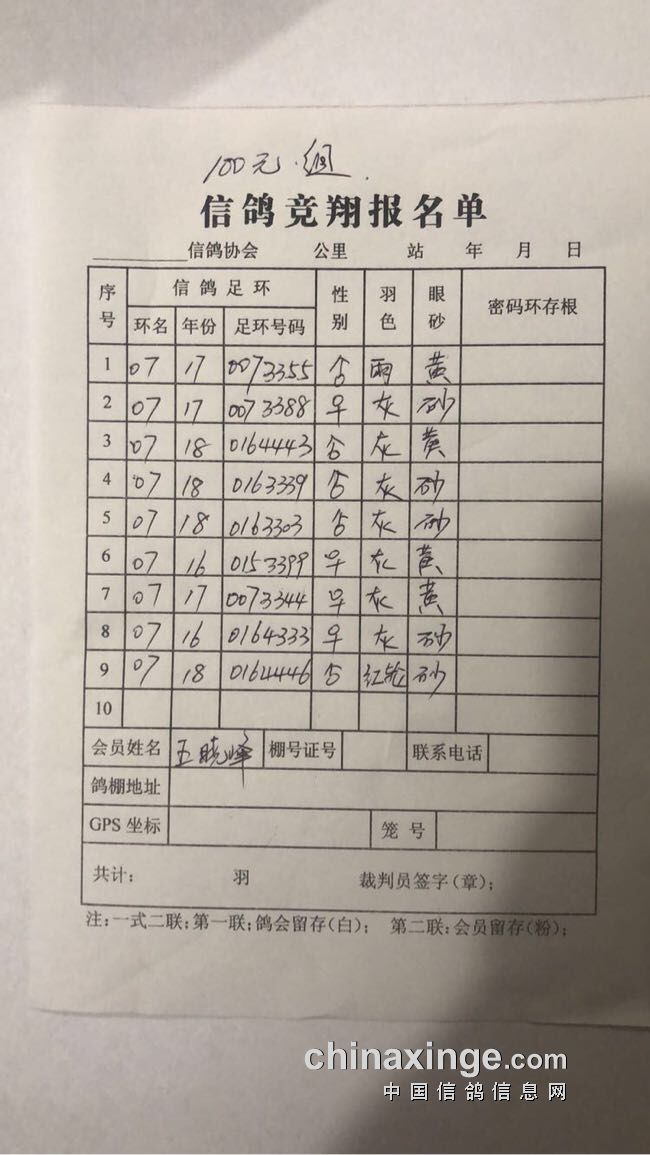 100元·组
信鸽竞翔报名单
信鸽协会 公里 站 年 月 日
序号 信鸽足环 性别 羽色 眼砂 密码环存根
环名 年份 足环号码
1 07 17 0073355 雨 黄
2 07 17 0073388 灰 砂
3 07 18 0164443 灰 黄
4 07 18 0163339 灰 砂
5 07 18 0163303 灰 砂
6 07 16 0153399 灰 黄
7 07 17 0073344 灰 黄
8 07 16 0164333 灰 砂
9 07 18 0164446 红轮 砂
10
会员姓名 王晓峰 棚号证号 联系电话
鸽棚地址
GPS 坐标 笼号
共计: 羽 裁判员签字(章);
注:一式二联;第一联;鸽会留存(白); 第二联:会员留存(粉);
chinaxinge.com
中国信鸽信息网